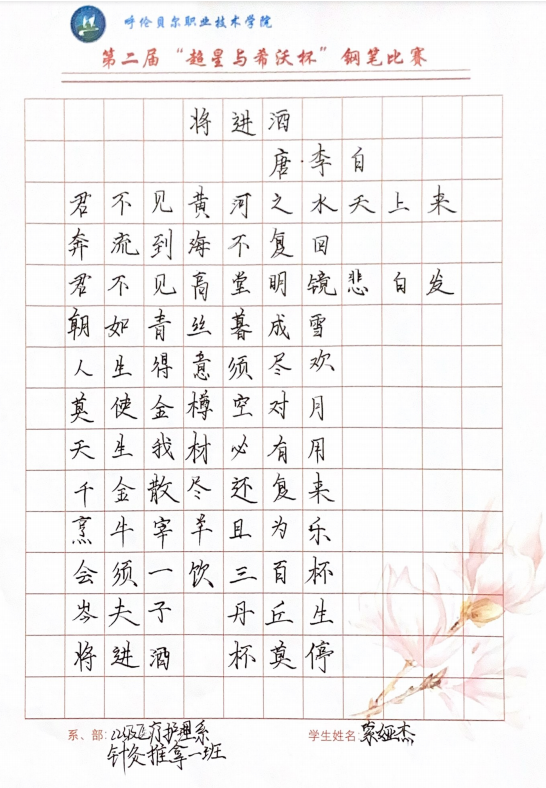 呼伦贝尔职业技术学院
第二届“超星与希沃杯”钢笔比赛
将进酒
唐·李白
君不见黄河之水天上来
奔流到海不复回
君不见高堂明镜悲白发
朝如青丝暮成雪
人生得意须尽欢
莫使金樽空对月
天生我材必有用
千金散尽还复来
烹牛宰羊且为乐
会须一饮三百杯
岑夫子 丹丘生
将进酒 杯莫停
系、部:22级医疗护理系 学生姓名:蒙娅杰
针灸推拿一班